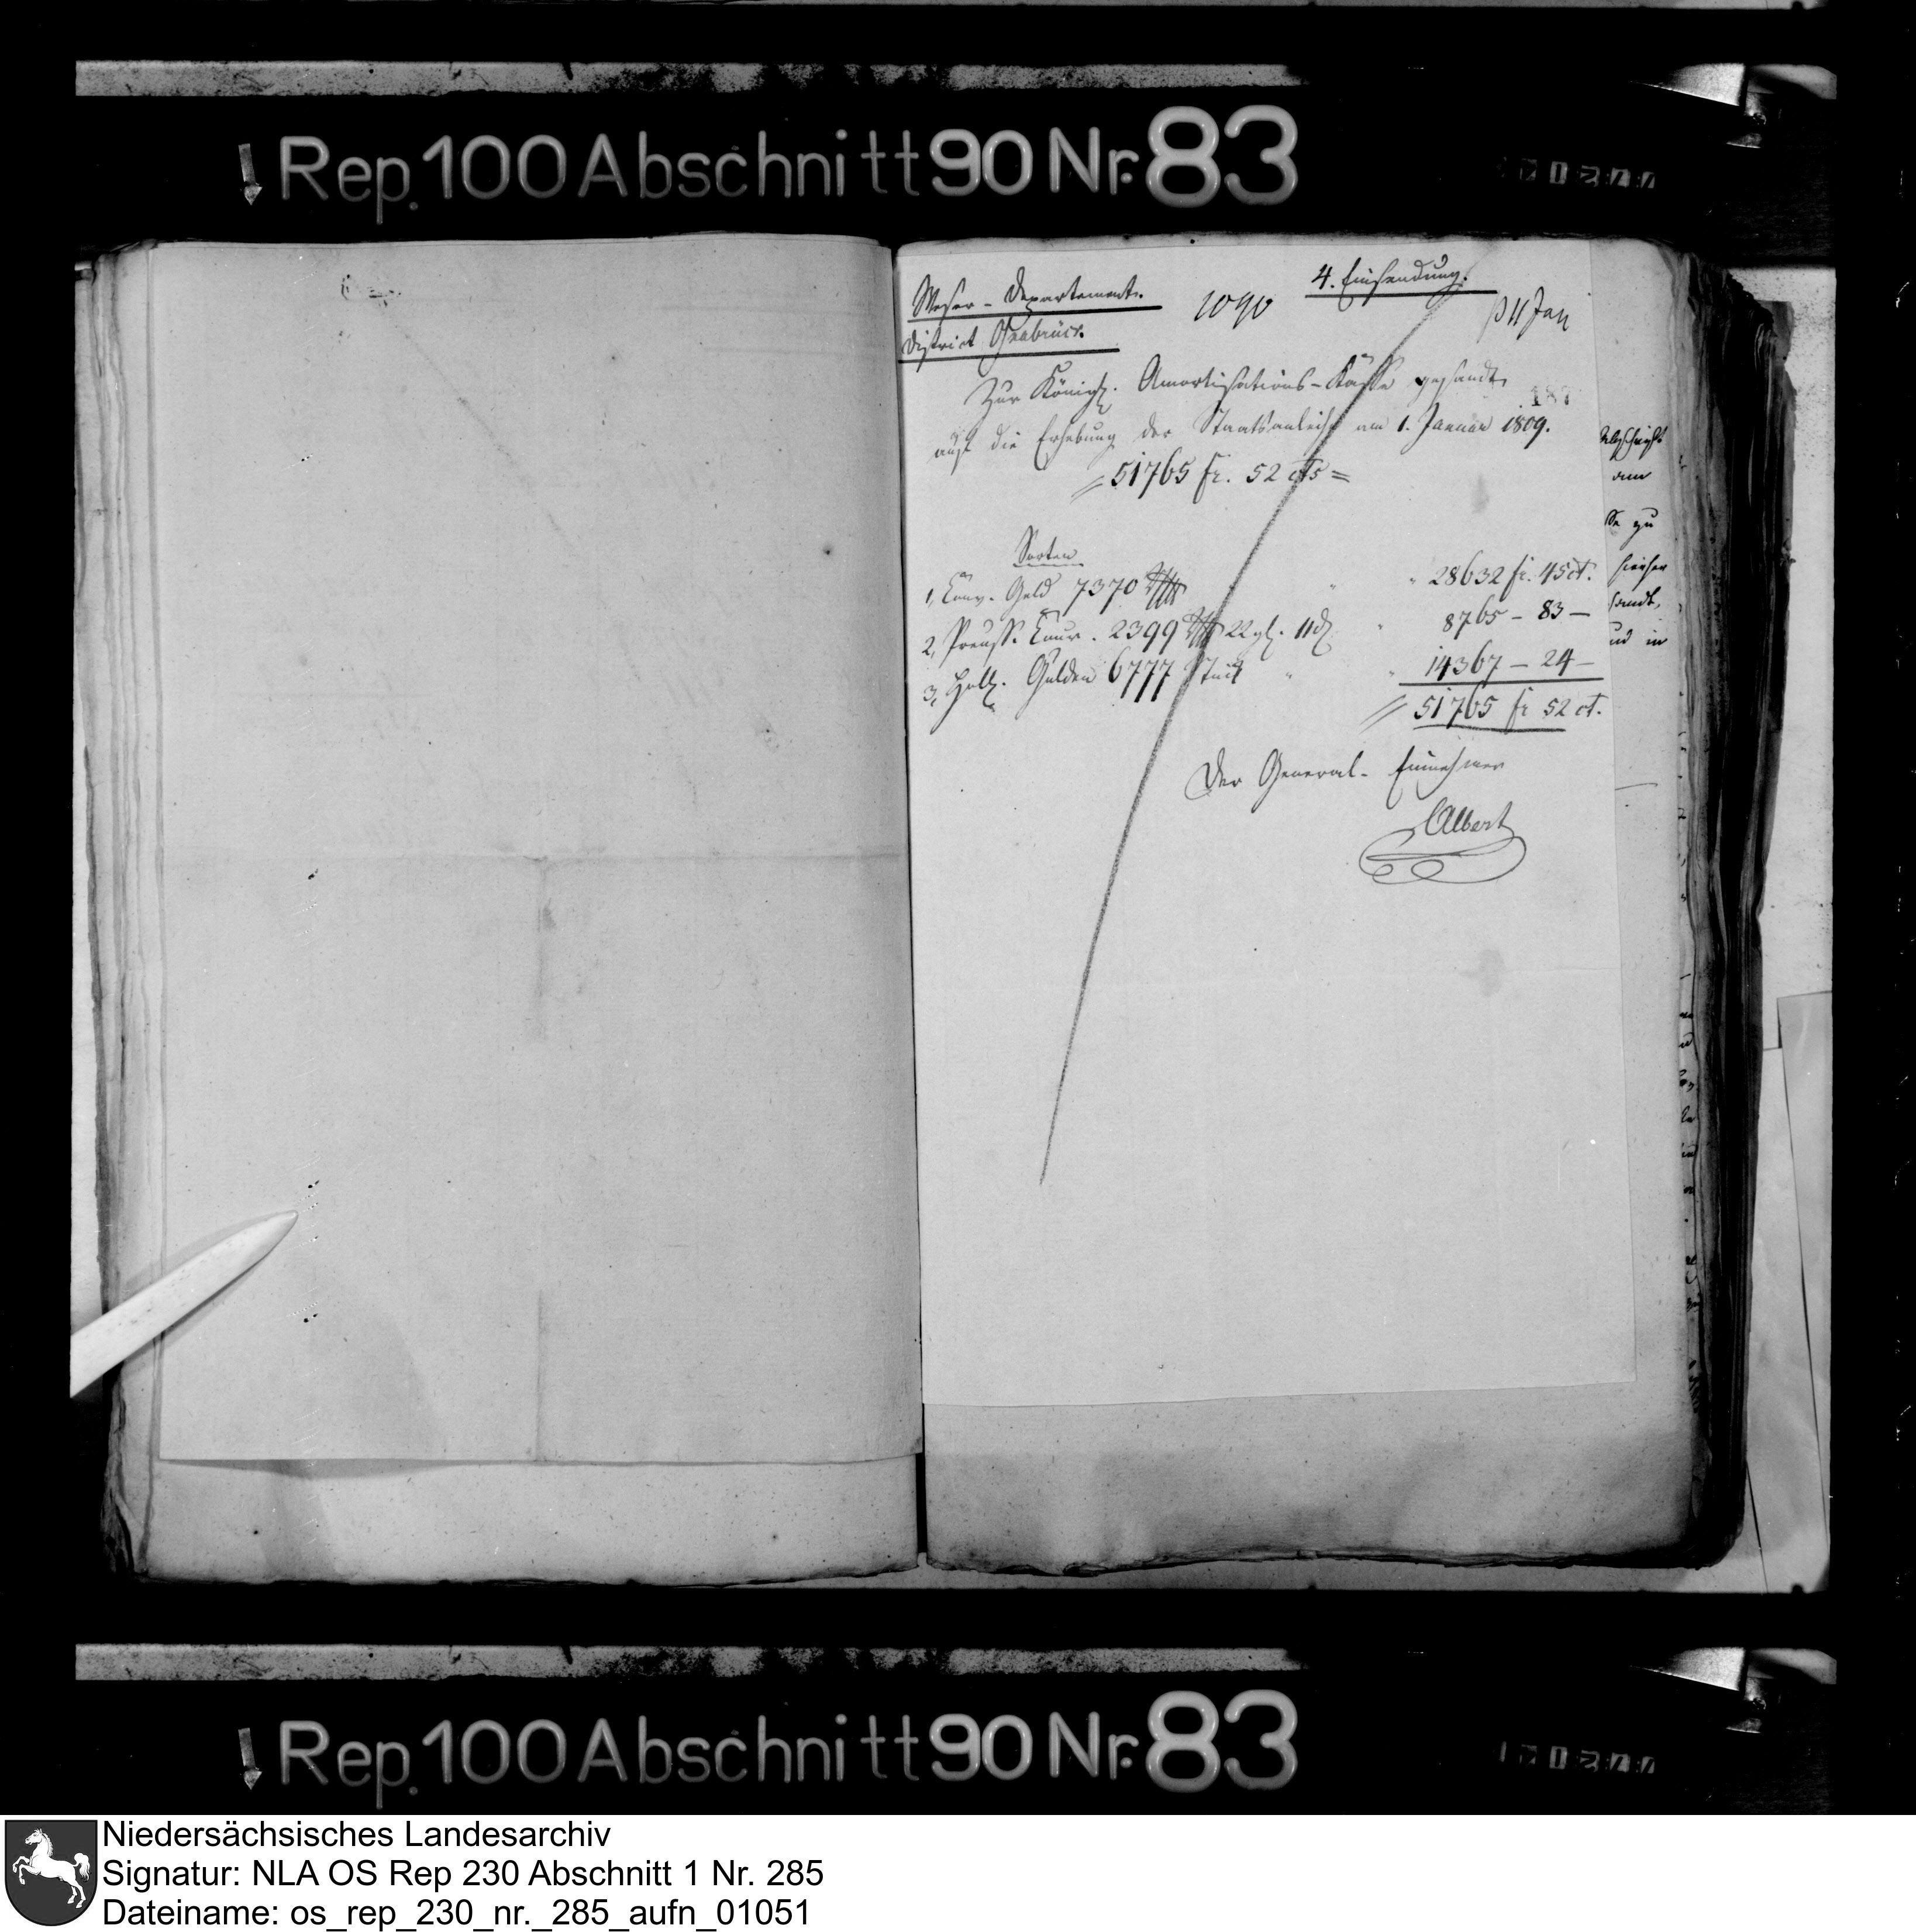 Rep. 100 Abschnitt 90 Nr. 83
Weser-Departement.
4. Einsendung.
District Osnabrück.
1090
11 Jan
Zur Königl. Amortisations-Casse gesandt
187
auf die Erhebung der Staatsanleihe am 1. Januar 1809.
51765 fr. 52 cts =
Sorten
1, Conv. Geld 7370 " " 28632 fr. 45 ct.
2, Preuss. Cour. 2399 22 gl. 11 d " 8765 - 83 -
3, Holl. Gulden 6777 Stück " " 14367 - 24 -
51765 fr 52 ct.
Der General-Einnehmer
Albert
am
zu
hieher
sandt,
und in
Rep. 100 Abschnitt 90 Nr. 83
Niedersächsisches Landesarchiv
Signatur: NLA OS Rep 230 Abschnitt 1 Nr. 285
Dateiname: os_rep_230_nr._285_aufn_01051